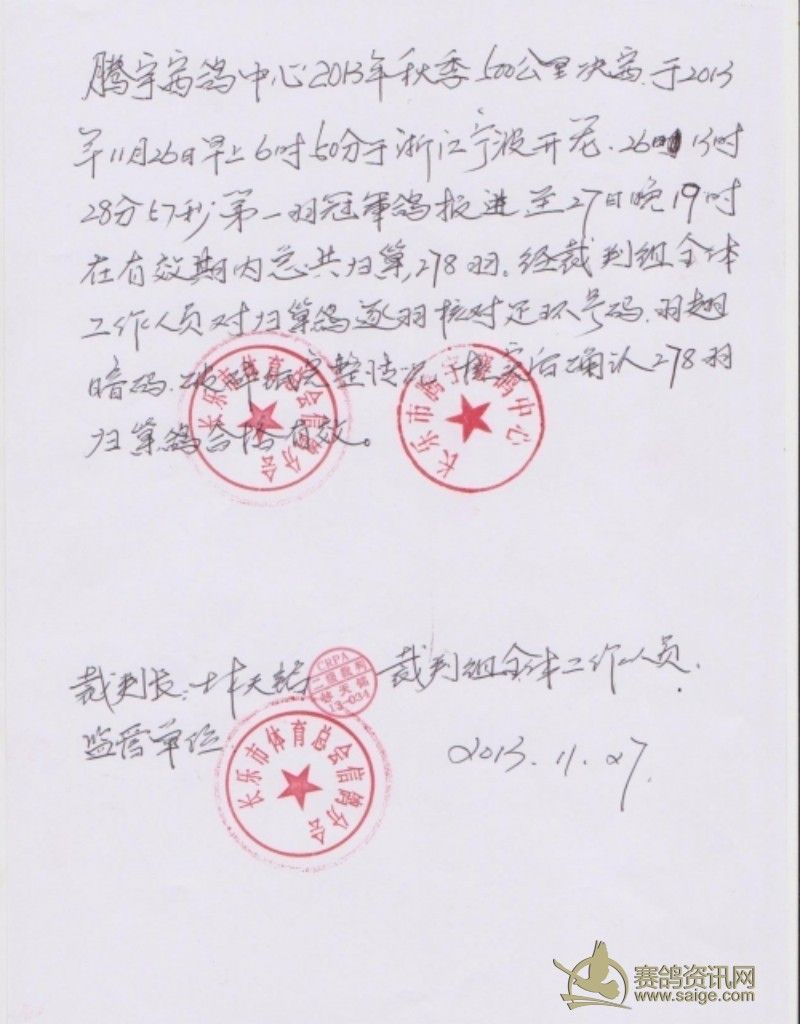 腾宇赛鸽中心2013年秋季500公里决赛.于2013
年11月26日早上6时50分于浙江宁波开笼.26日13时
28分57秒第一羽冠军鸽报进至27日晚19时
在有效期内总共归巢,278羽。经裁判组全体
工作人员对归巢鸽逐羽核对足环号码.羽翅
暗码.破碎 完整情况.核实后确认278羽
归巢鸽合格有效。
长乐市体育总会信鸽分会
长乐市腾宇赛鸽中心
裁判长: 天 裁判组全体工作人员.
CRPA
二级裁判
13-034
监督单位
长乐市体育总会信鸽分会
2013.11.27.
赛鸽资讯网
www.saige.com